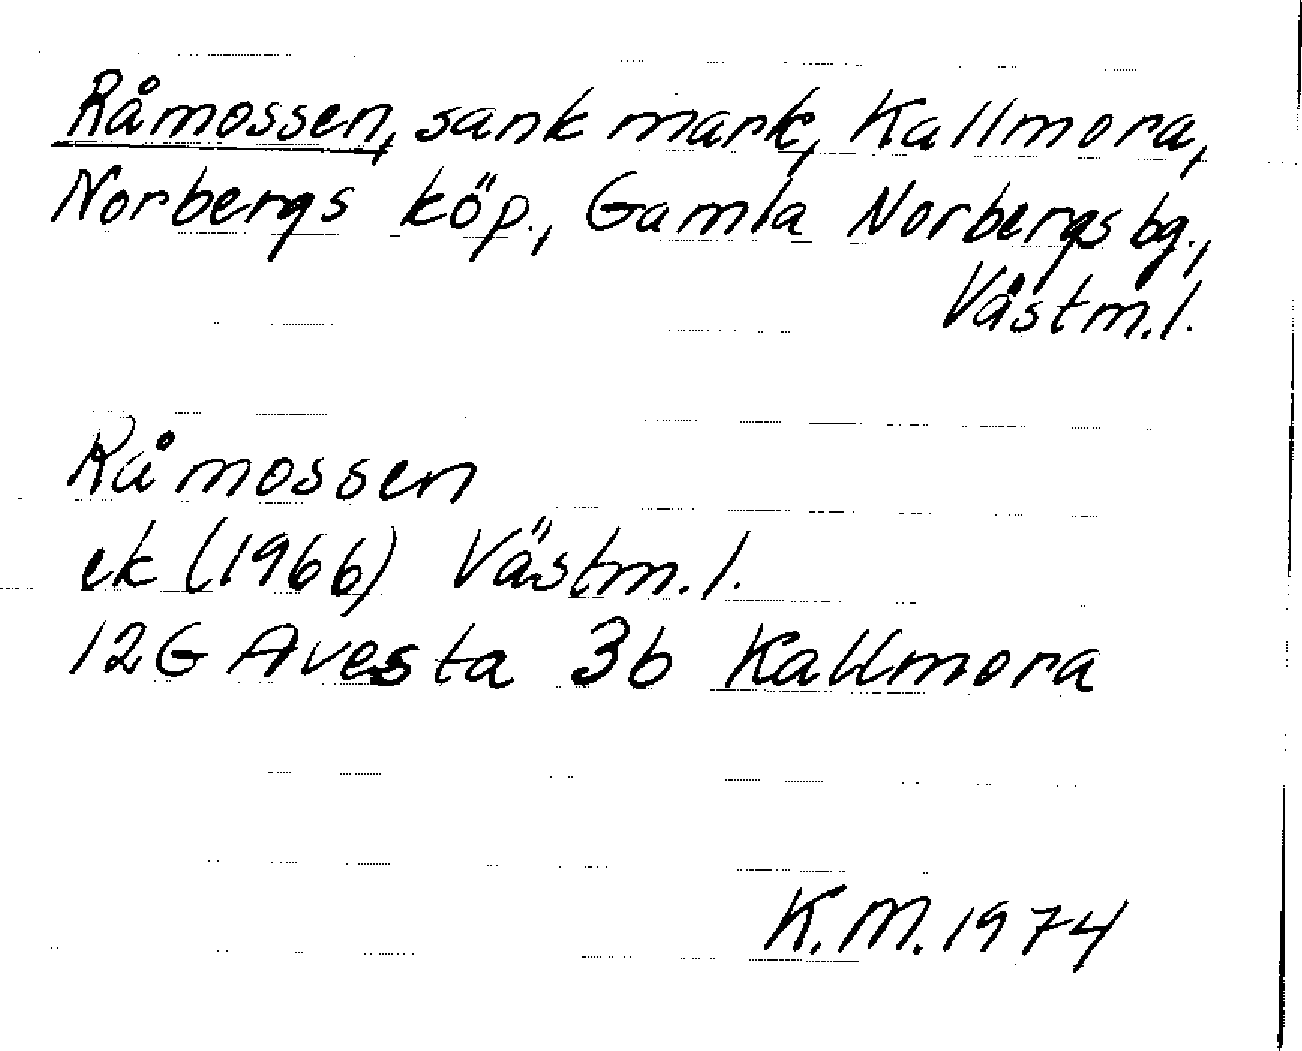 Råmossen, sank mark, Kallmora,
Norbergs köp., Gamla Norbergs bg.,
Västm.l.
Råmossen
ek (1966) Västm.l.
12G Avesta 3b Kallmora
K.M. 1974